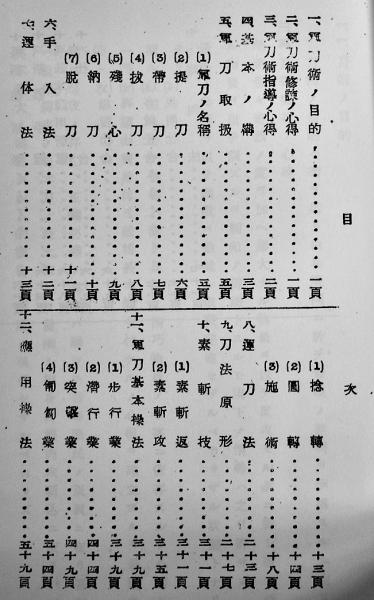 目次
一、軍刀術ノ目的 一頁
二、軍刀術修諫ノ心得 一頁
三、軍刀術指導ノ心得 二頁
四、基本ノ構 三頁
五、軍刀取扱 五頁
(1) 軍刀ノ名稱 五頁
(2) 提刀 六頁
(3) 帶刀 七頁
(4) 拔刀 八頁
(5) 殘心 九頁
(6) 納刀 十頁
(7) 脫刀 十一頁
六、手入法 十二頁
七、運体法 十三頁
(1) 捻轉 十三頁
(2) 圓轉 十四頁
(3) 施術 十八頁
八、運刀法 二十三頁
九、刀法原形 二十七頁
十、素斬技 三十一頁
(1) 素斬返 三十一頁
(2) 素斬攻 三十五頁
十一、軍刀基本操法 三十九頁
(1) 步行業 三十九頁
(2) 潜行業 四十四頁
(3) 突擊業 四十九頁
(4) 匍匐業 五十四頁
十二、應用操法 五十九頁